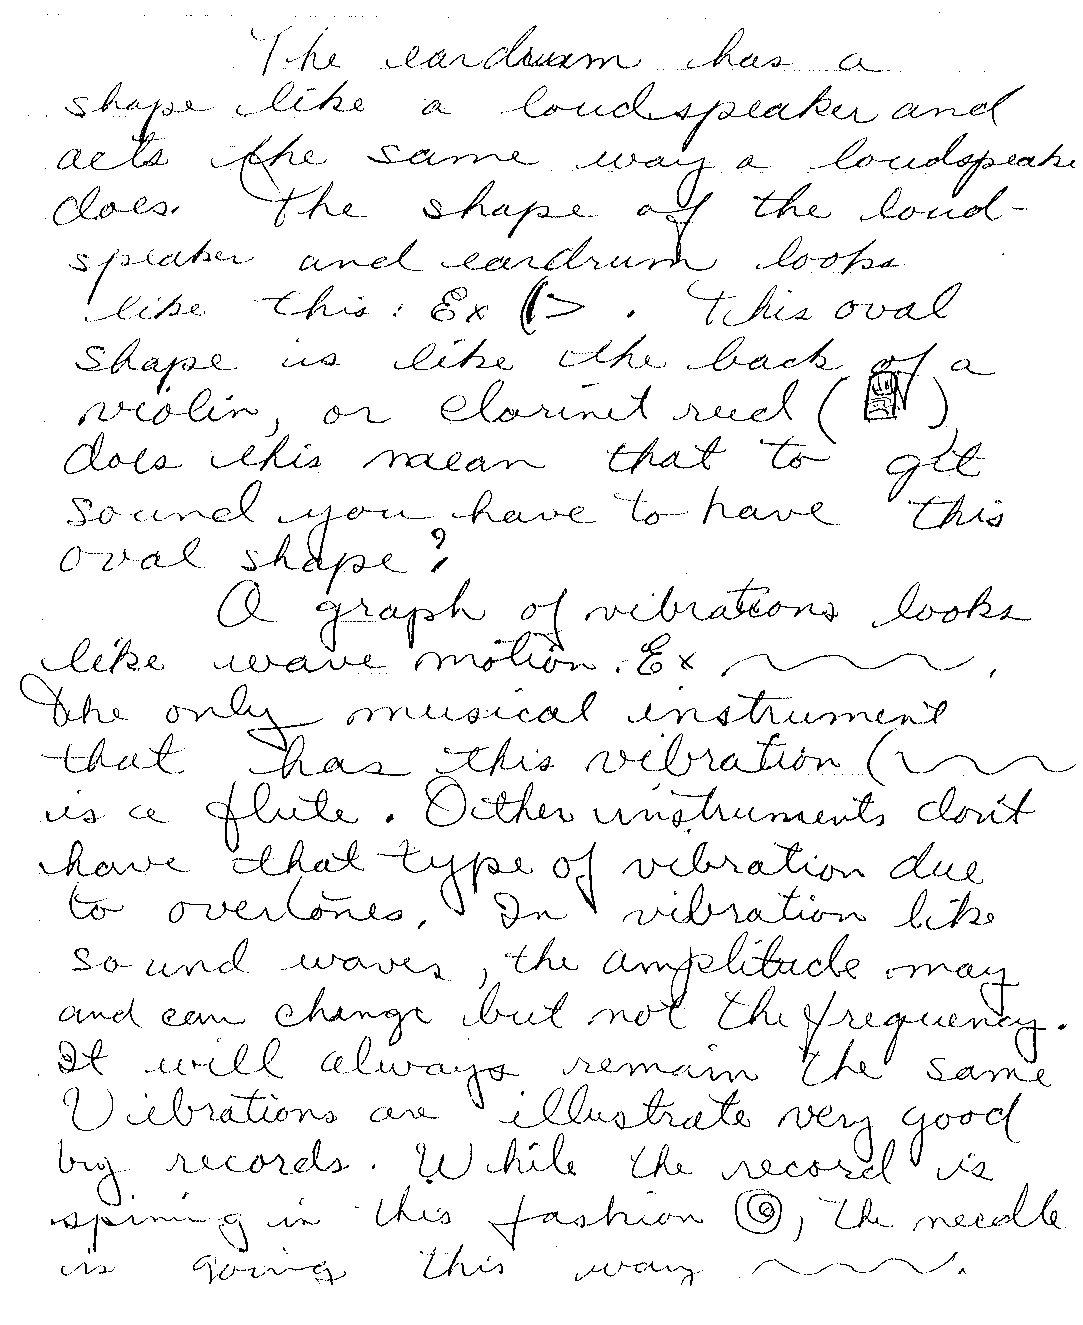 The eardrum has a
shape like a loudspeaker and
acts the same way a loudspeake
does. The shape of the loud-
speaker and eardrum looks
like this: Ex . This oval
shape is like the back of a
violin, or clarinet reed ( )
does this mean that to get
sound you have to have this
oval shape?
A graph of vibrations looks
like wave motion. Ex .
The only musical instrument
that has this vibration (
is a flute. Other instruments don't
have that type of vibration due
to overtones. In vibration like
sound waves, the amplitude may
and can change but not the frequency.
It will always remain the same
Vibrations are illustrate very good
by records. While the record is
spining in this fashion , the needle
is going this way .